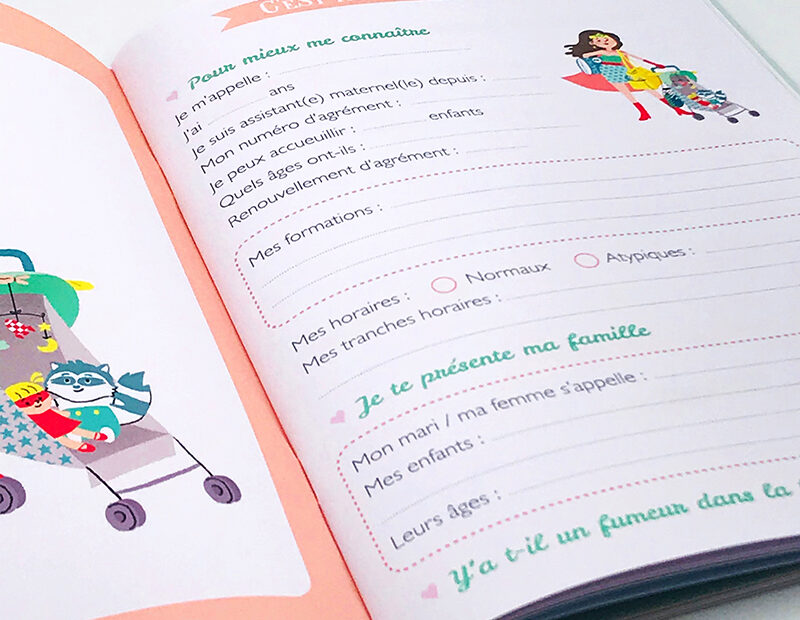 C'EST
Pour mieux me connaître
Je m'appelle :
J'ai ans
Je suis assistant(e) maternel(le) depuis :
Mon numéro d'agrément :
Je peux accueuillir : enfants
Quels âges ont-ils :
Renouvellement d'agrément :
Mes formations :
Mes horaires : Normaux Atypiques :
Mes tranches horaires :
Je te présente ma famille
Mon mari / ma femme s'appelle :
Mes enfants :
Leurs âges :
Y'a t-il un fumeur dans la